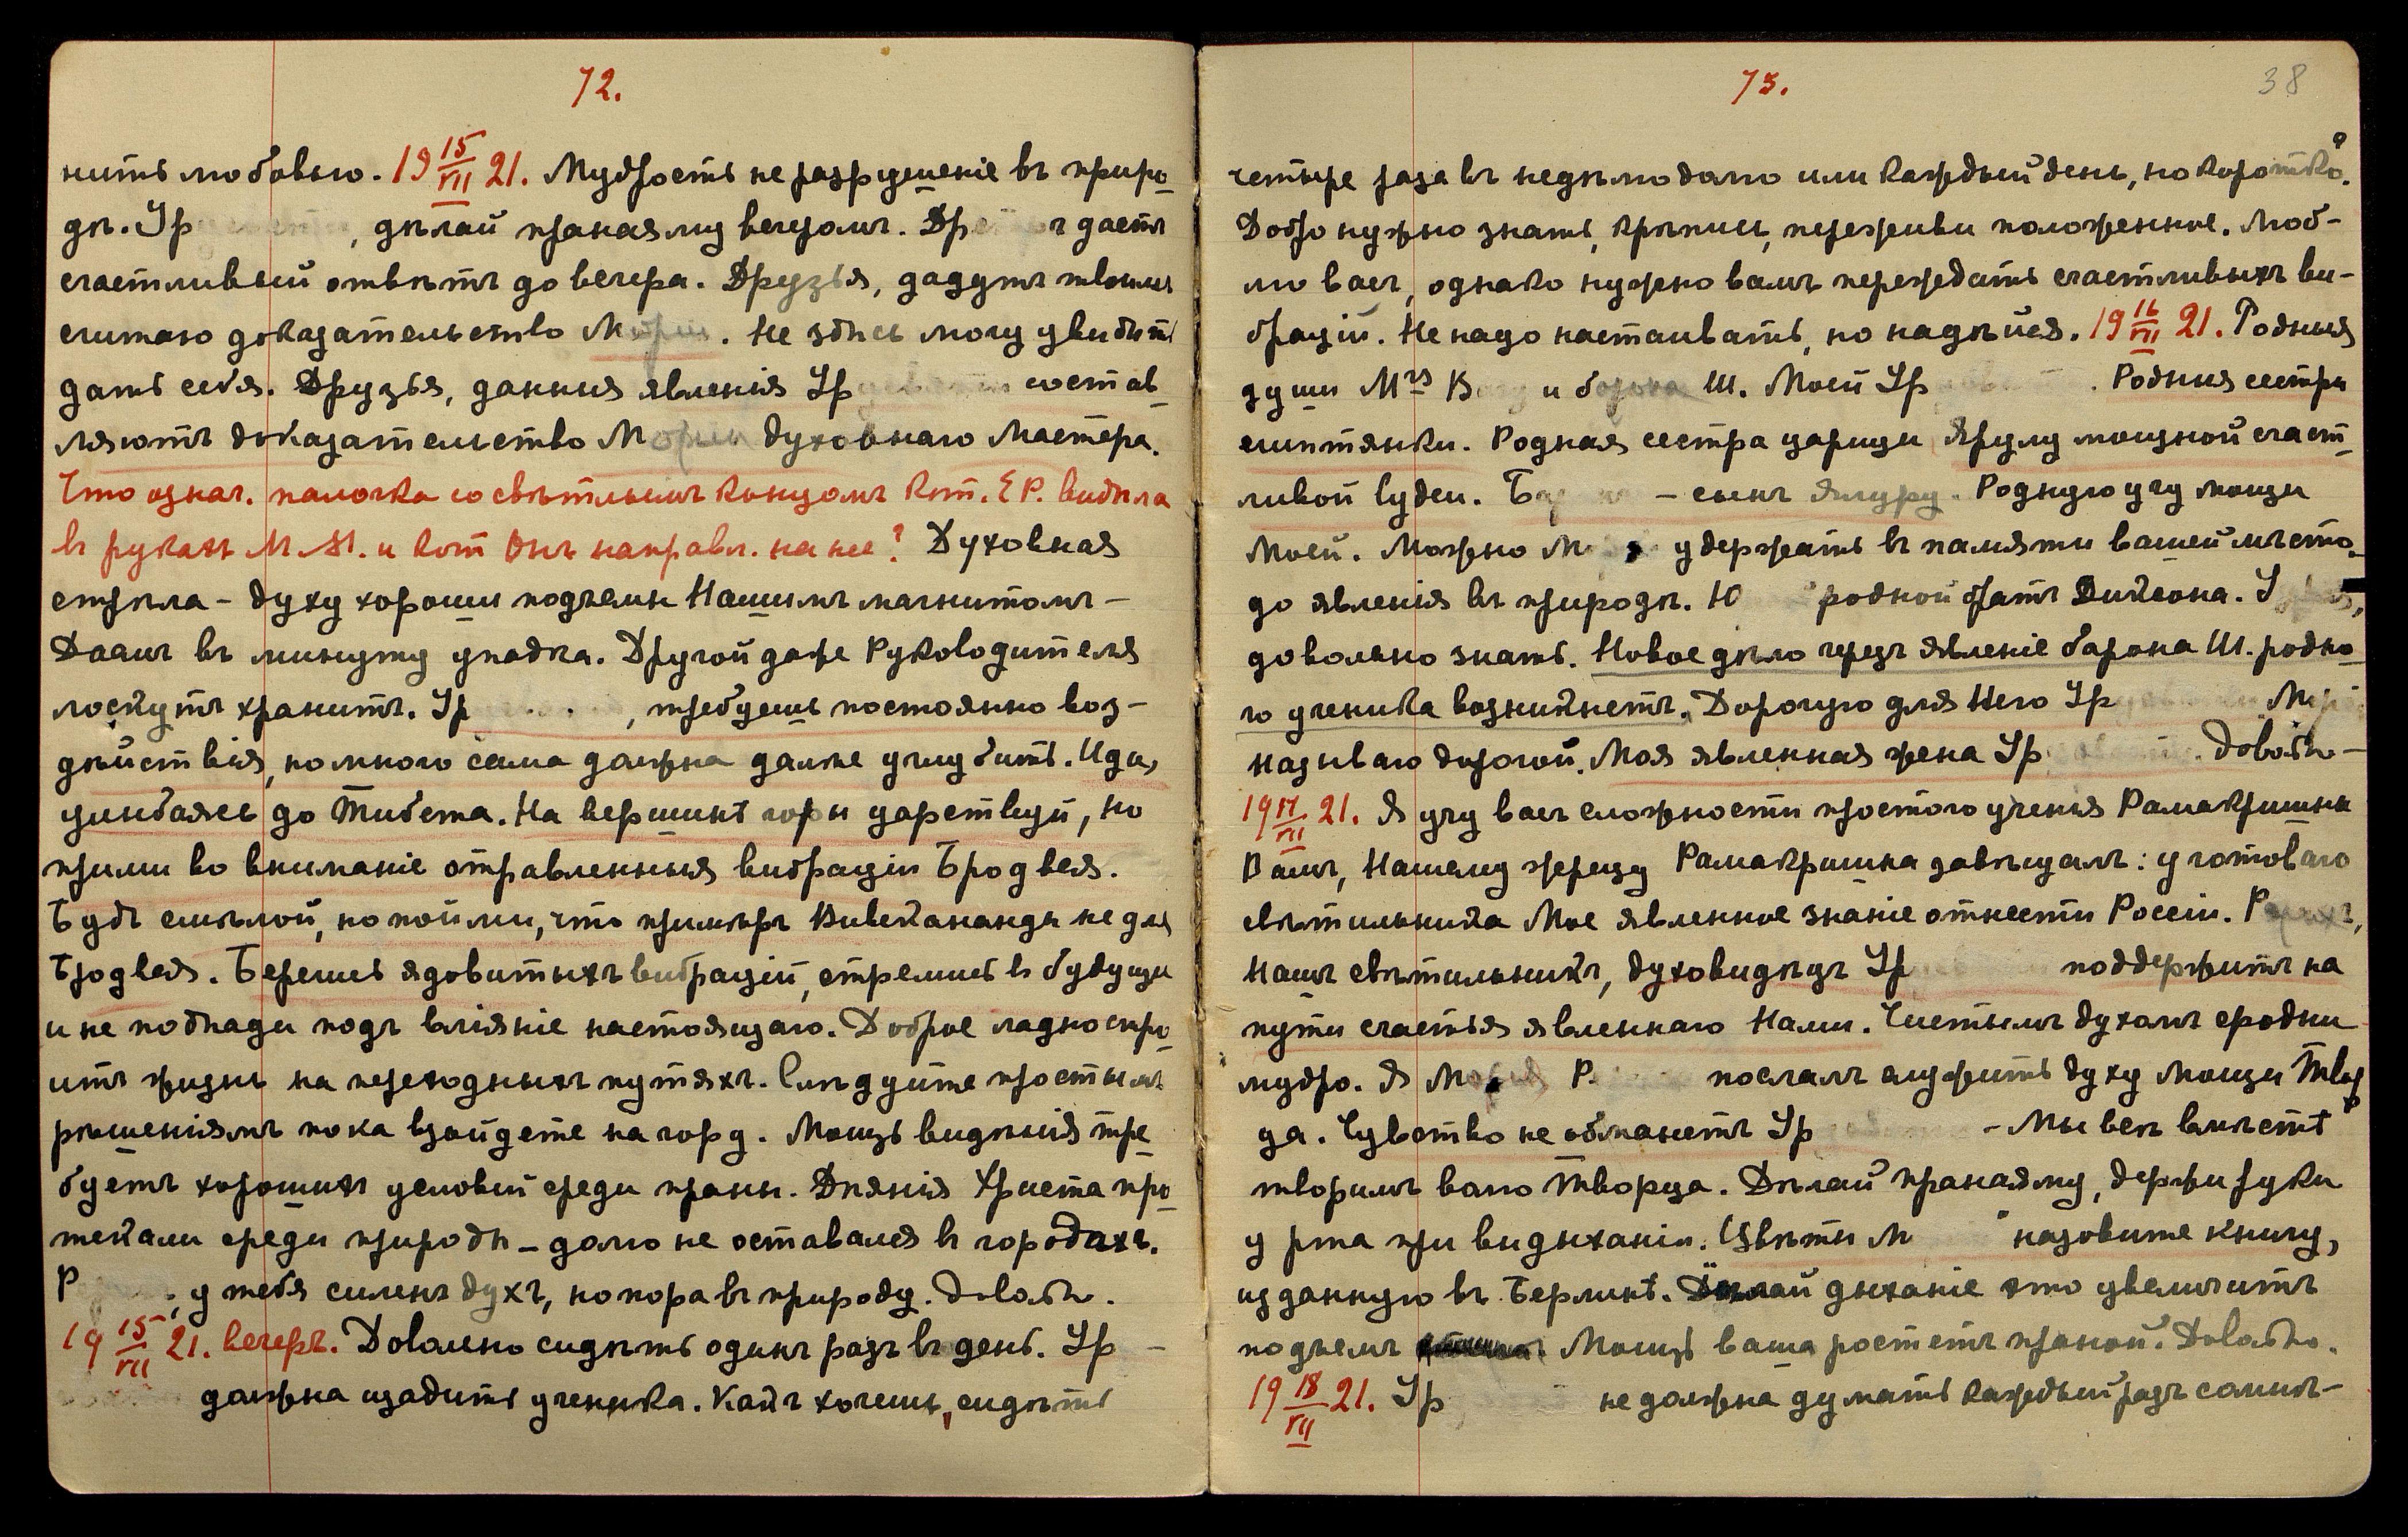 72.
нить любовью. 19 15/VII 21. Мудрость не разрушеніе въ приро-
дѣ. Ур , дѣлай пранаяму вечеромъ. дастъ
счастливый отвѣтъ до вечера. Друзья, дадутъ
считаю доказательство М. Не здѣсь могу увидѣть
дать себя. Друзья, данныя явленія Ур состав-
ляютъ доказательство М духовнаго Мастера.
Что означ. палочка со свѣтлымъ концомъ кот. Е Р. видѣла
въ рукахъ М. М. и кот Онъ направл. на нее? Духовная
стрѣла – духу хороши подъемы Нашимъ магнитомъ –
Дадимъ въ минуту упадка. Другой даже Руководителя
лоскутъ хранитъ. Ур , требуешь постоянно воз-
дѣйствія, но много сама должна далѣе углубить. Иди,
улыбаясь до Тибета. На вершинѣ горы царствуй, но
прими во вниманіе отравленныя вибраціи Бродвея.
Будь смѣлой, но пойми, что примѣръ Вивекананды не для
Бродвея. Берешь ядовитыхъ вибрацій, стремись въ будущи
и не подпади подъ вліяніе настоящаго. Доброе ладно скро-
итъ жизнь на переходныхъ путяхъ. Слѣдуйте простымъ
рѣшеніямъ пока взойдете на гору. Мощь видѣнія тре-
буетъ хорошихъ условій среди праны. Дѣянія Христа про-
текали среди природы – долго не оставался въ городахъ.
Р , у тебя силенъ духъ, но пора въ природу. Довольно.
19 15/VII 21. вечеръ. Довольно сидѣть одинъ разъ въ день. Ур –
должна щадить ученика. Какъ хочешь, сидѣть
73.
38
четыре раза въ недѣлю долго или каждый день, но коротко.
Добро нужно знать, крѣпись, переживи положенное. Люб-
лю васъ, однако нужно вамъ переждать счастливыхъ ви-
брацій. Не надо настаивать, но надѣйся. 19 16/VII 21. Родныя
души Mrs В и барона Ш. Моей Ур . Родныя сестры
египтянки. Родная сестра царицы Ярулу мощной счаст-
ливой Судеи. Б – сынъ Ялуру. Родную учу мощи
Моей. Можно М удержать въ памяти вашей мѣсто
до явленія въ природѣ. Ю родной братъ Диксона. У ,
довольно знать. Новое дѣло черезъ явленіе барона Ш. родно-
го ученика возникнетъ. Дорогую для Него Ур М
называю дорогой. Моя явленная жена Ур . Довольно –
19 17/VII 21. Я учу васъ сложности простого ученія Рамакришны
Вамъ, Нашему жрецу Рамакришна завѣщалъ: у готоваго
свѣтильника Мое явленное знаніе отнести Россіи. Р ,
Нашъ свѣтильникъ, духовидѣцъ Ур поддержитъ на
пути счастья явленнаго Нами. Чистымъ духамъ сродни
мудро. Я М Р. послалъ служить духу мощи Твор
ца. Чувство не обманетъ Ур – Мы всѣ вмѣстѣ
творимъваго Творца. Дѣлай пранаяму, держи руки
у рта при выдыханіи. Цвѣты М назовите книгу,
изданную въ Берлинѣ. Дѣлай дыханіе это увеличитъ
подъемъ Мощь ваша ростетъ праной. Довольно.
19 18/VII 21. Ур не должна думать каждый разъ самимъ –